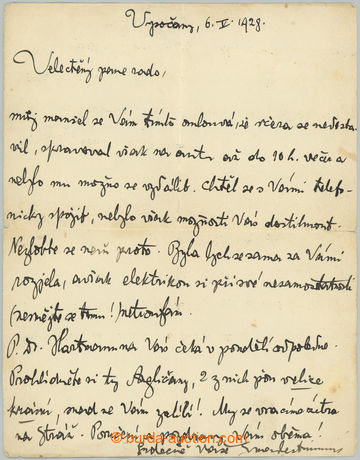 Vysočany, 6. V. 1928.
Velectěný pane rado,
můj manžel se Vám tímto omlouvá, že včera se nedosta-
vil, spravoval však na autu až do 10 h. večer a
nebylo mu možno se vzdálit. Chtěl se s Vámi telefo-
nicky spojit, nebylo však možnosti Vás dostihnout.
Nezlobte se naň proto. Byla bych se sama za Vámi
rozjela, avšak elektrikou si připadá nesamostatnosti
(nesmějte se tomu!) netroufám.
P. Dr. Hartmann na Vás čeká v pondělí odpoledne.
Prohlédněte si ty Angličany, 2 z nich jsou velice
krásní, snad se Vám zalíbí! My se vracíme zítra
na Stráž. Poručení a pozdravy Vám oběma!
Srdečně Vaše
www.burda-auction.com